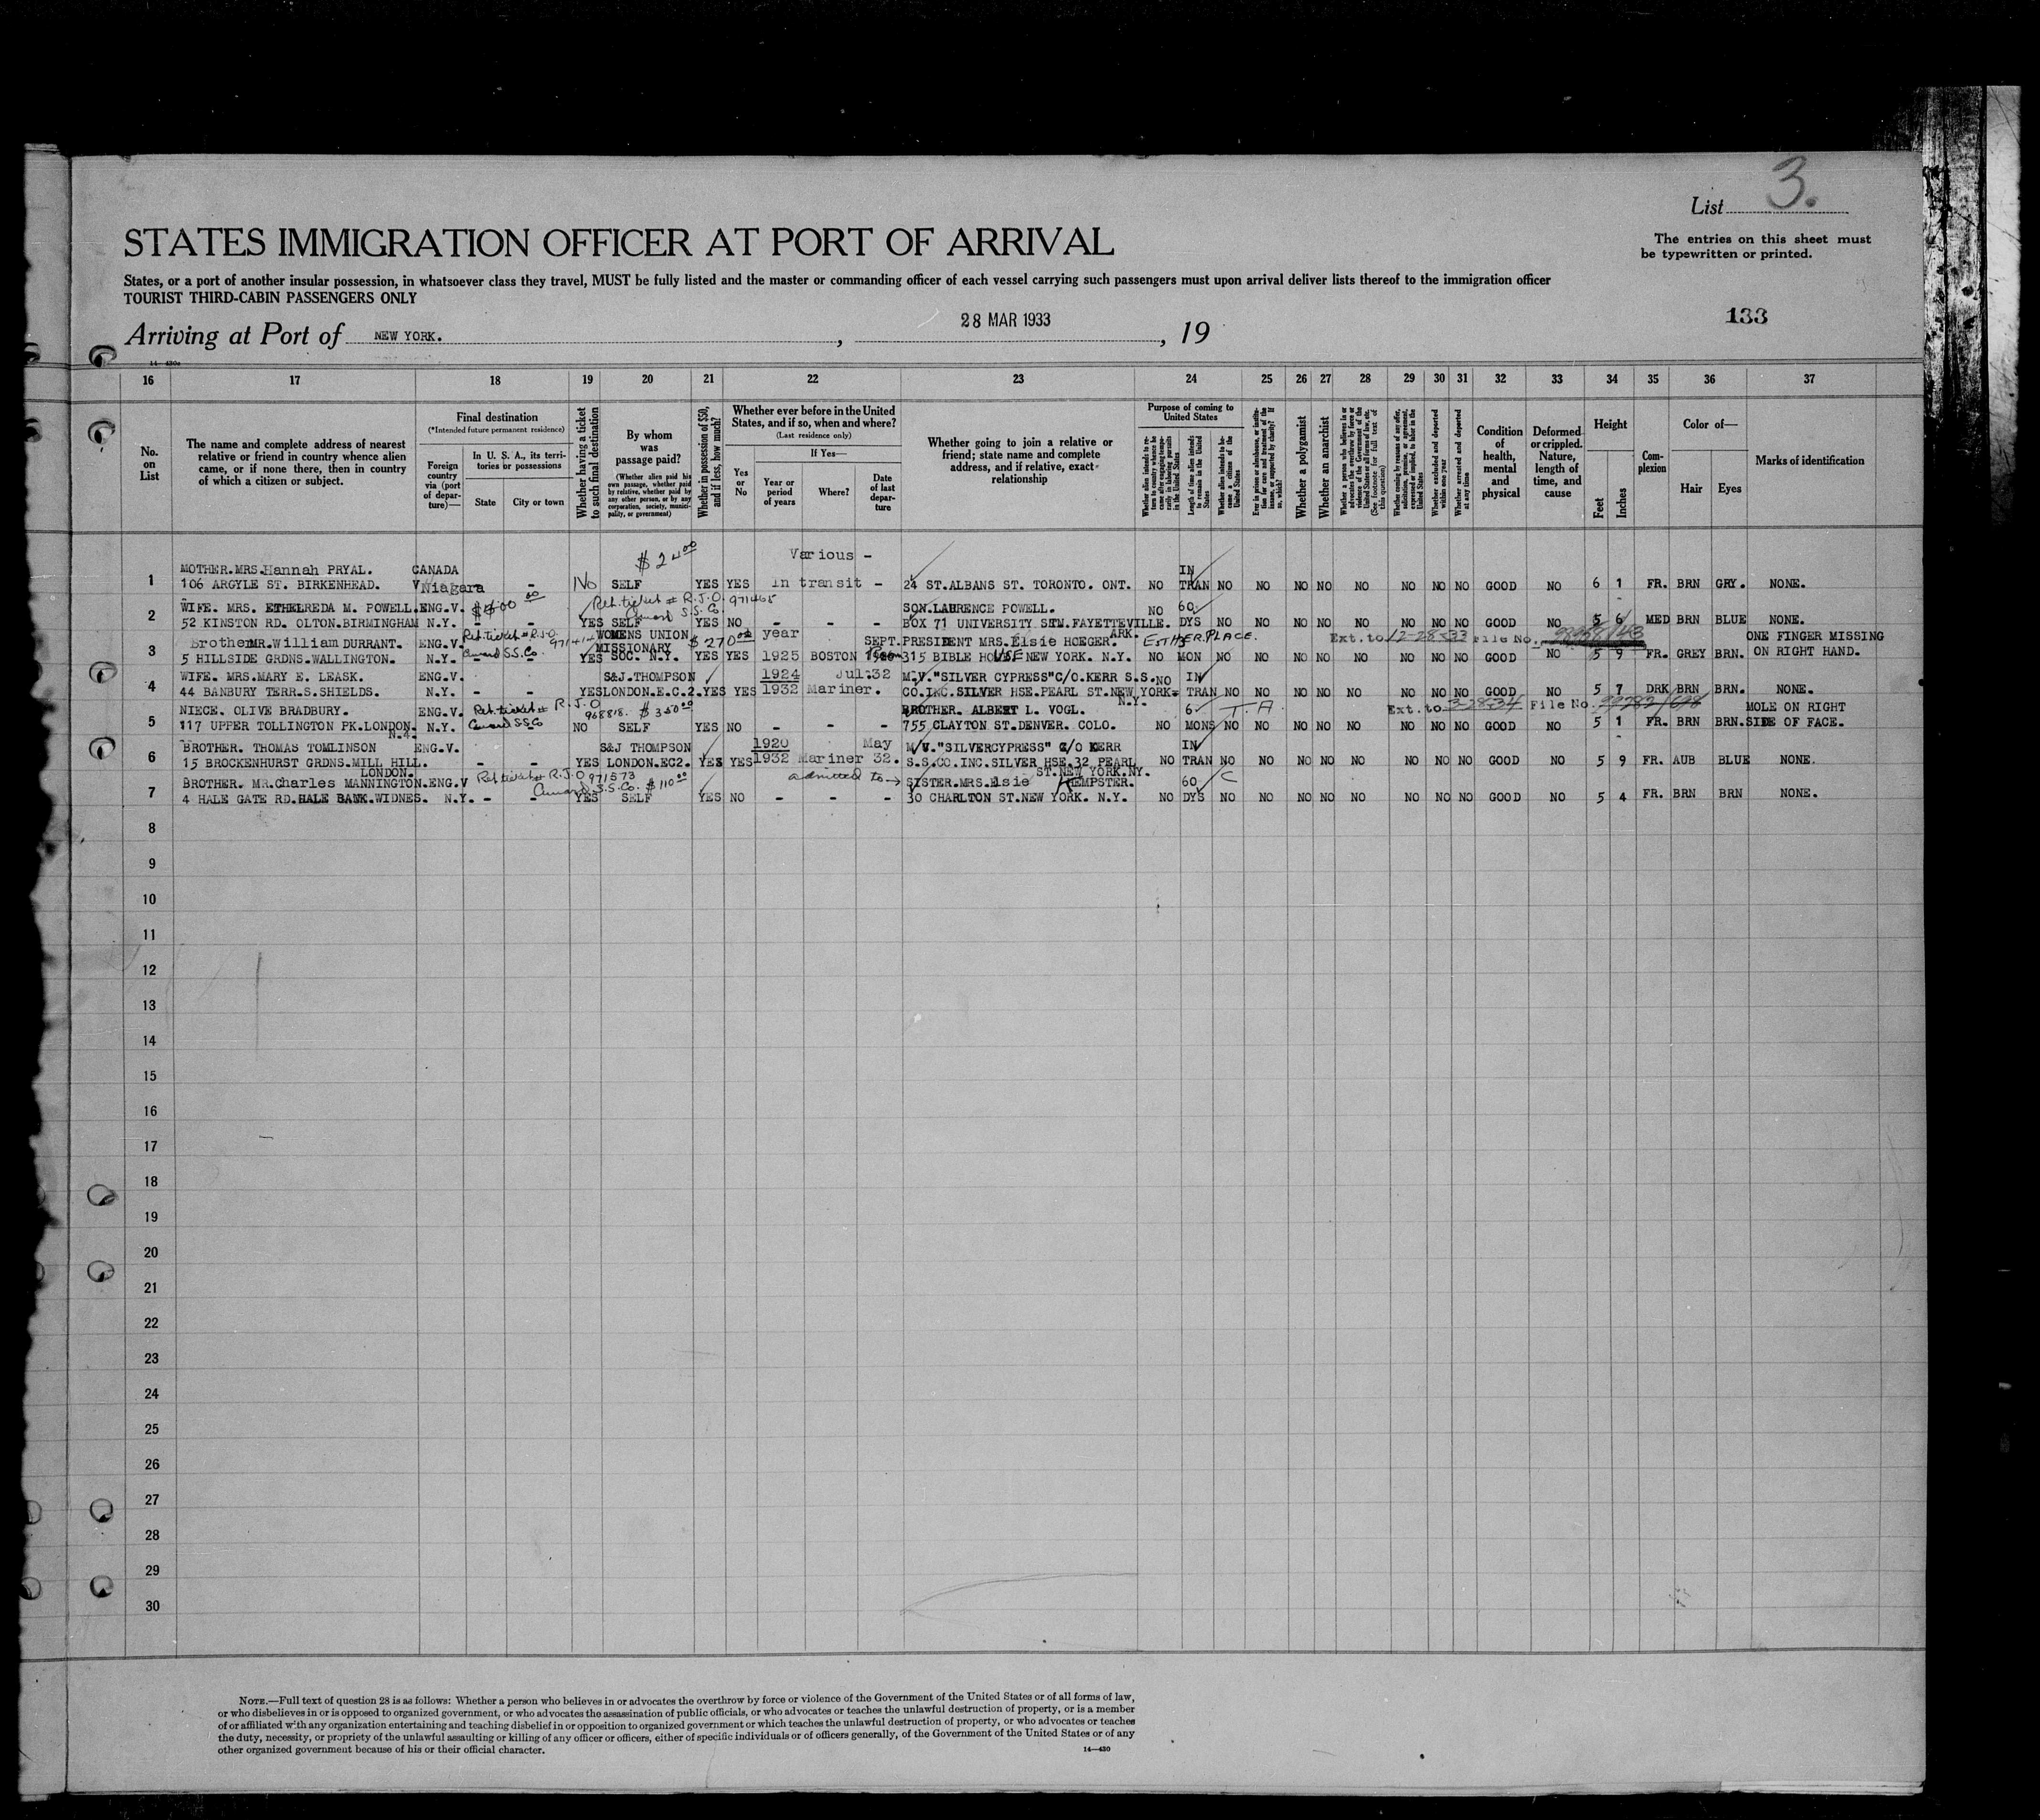 List 3.
STATES IMMIGRATION OFFICER AT PORT OF ARRIVAL
The entries on this sheet must
be typewritten or printed.
States, or a port of another insular possession, in whatsoever class they travel, MUST be fully listed and the master or commanding officer of each vessel carrying such passengers must upon arrival deliver lists thereof to the immigration officer
TOURIST THIRD-CABIN PASSENGERS ONLY
133
Arriving at Port of NEW YORK. , 28 MAR 1933 , 19
14—430a
16 17 18 19 20 21 22 23 24 25 26 27 28 29 30 31 32 33 34 35 36 37
No. on List
The name and complete address of nearest relative or friend in country whence alien came, or if none there, then in country of which a citizen or subject.
Final destination
(*Intended future permanent residence)
Foreign country via (port of departure)—
In U. S. A., its territories or possessions
State City or town
Whether having a ticket to such final destination
By whom was passage paid?
(Whether alien paid his own passage, whether paid by relative, whether paid by any other person, or by any corporation, society, municipality, or government)
Whether in possession of $50, and if less, how much?
Whether ever before in the United States, and if so, when and where?
(Last residence only)
Yes or No
If Yes—
Year or period of years Where? Date of last departure
Whether going to join a relative or friend; state name and complete address, and if relative, exact relationship
Purpose of coming to United States
Whether alien intends to return to country whence he came after engaging temporarily in laboring pursuits in the United States
Length of time alien intends to remain in the United States
Whether alien intends to become a citizen of the United States
Ever in prison or almshouse, or institution for care and treatment of the insane, or supported by charity? If so, which?
Whether a polygamist
Whether an anarchist
Whether a person who believes in or advocates the overthrow by force or violence of the Government of the United States or all forms of law, etc. (See footnote for full text of this question)
Whether coming by reason of any offer, solicitation, promise, or agreement, expressed or implied, to labor in the United States
Whether excluded and deported within one year
Whether arrested and deported at any time
Condition of health, mental and physical
Deformed or crippled. Nature, length of time, and cause
Height
Feet Inches
Complexion
Color of—
Hair Eyes
Marks of identification
$24.00 Various -
MOTHER.MRS.Hannah PRYAL. CANADA IN
1 106 ARGYLE ST. BIRKENHEAD. V Niagara - No SELF YES YES in transit - 24 ST.ALBANS ST. TORONTO. ONT. NO TRAN NO NO NO NO NO NO NO NO GOOD NO 6 1 FR. BRN GRY. NONE.
Ret. ticket # R.J.O. 971465
Cunard S.S. Co.
WIFE. MRS. ETHELREDA M. POWELL. ENG.V. SON.LAURENCE POWELL. NO 60
2 52 KINSTON RD. OLTON.BIRMINGHAM N.Y. - - YES SELF YES NO - - - BOX 71 UNIVERSITY STN.FAYETTEVILLE. DYS NO NO NO NO NO NO NO NO GOOD NO 5 6 MED BRN BLUE NONE.
ARK.
Brother MR.William DURRANT. ENG.V. Ret. ticket # R.J.O. 971414 Cunard S.S. Co. WOMENS UNION MISSIONARY $270.00 year SEPT. PRESIDENT MRS.Elsie HOEGER. ESTHER PLACE. Ext. to 12-28-33 File No. ONE FINGER MISSING
3 5 HILLSIDE GRDNS.WALLINGTON. N.Y. - - YES SOC. N.Y. YES YES 1925 BOSTON 315 BIBLE HOUSE NEW YORK. N.Y. NO MON NO NO NO NO NO NO NO NO GOOD NO 5 9 FR. GREY BRN. ON RIGHT HAND.
WIFE. MRS.MARY E. LEASK. ENG.V. S&J.THOMPSON 1924 Jul:32 M.V."SILVER CYPRESS"C/O.KERR S.S. NO IN
4 44 BANBURY TERR.S.SHIELDS. N.Y. - - YES LONDON.E.C.2. YES YES 1932 Mariner. CO.INC.SILVER HSE.PEARL ST.NEW YORK= TRAN NO NO NO NO NO NO NO NO GOOD NO 5 7 DRK BRN BRN. NONE.
N.Y.
NIECE. OLIVE BRADBURY. ENG.V. Ret. ticket # R.J.O 968818. $350.00 Cunard S.S.Co BROTHER. ALBERT L. VOGL. 6 T-A Ext. to 3-28-34 File No. MOLE ON RIGHT
5 117 UPPER TOLLINGTON PK.LONDON. N.Y. - - NO SELF YES NO - - - 755 CLAYTON ST.DENVER. COLO. NO MONS NO NO NO NO NO NO NO NO GOOD NO 5 1 FR. BRN BRN. SIDE OF FACE.
N.4.
BROTHER. THOMAS TOMLINSON ENG.V. S&J THOMPSON 1920 May M/V."SILVERCYPRESS" C/O KERR IN
6 15 BROCKENHURST GRDNS.MILL HILL. YES LONDON.EC2. YES YES 1932 Mariner 32. S.S.CO.INC.SILVER HSE.32 PEARL NO TRAN NO NO NO NO NO NO NO NO GOOD NO 5 9 FR. AUB BLUE NONE.
LONDON. ST.NEW YORK.NY.
BROTHER. MR.Charles MANNINGTON. ENG.V Ret ticket # R.J.O 971573 Cunard S.S.Co. $110.00 admitted to→ SISTER.MRS.Elsie KEMPSTER. 60 C
7 4 HALE GATE RD.HALE BANK.WIDNES. N.Y. - - YES SELF YES NO - - - 30 CHARLTON ST.NEW YORK. N.Y. NO DYS NO NO NO NO NO NO NO NO GOOD NO 5 4 FR. BRN BRN NONE.
8
9
10
11
12
13
14
15
16
17
18
19
20
21
22
23
24
25
26
27
28
29
30
NOTE.—Full text of question 28 is as follows: Whether a person who believes in or advocates the overthrow by force or violence of the Government of the United States or of all forms of law,
or who disbelieves in or is opposed to organized government, or who advocates the assassination of public officials, or who advocates or teaches the unlawful destruction of property, or is a member
of or affiliated with any organization entertaining and teaching disbelief in or opposition to organized government or which teaches the unlawful destruction of property, or who advocates or teaches
the duty, necessity, or propriety of the unlawful assaulting or killing of any officer or officers, either of specific individuals or of officers generally, of the Government of the United States or of any
other organized government because of his or their official character.
14—430